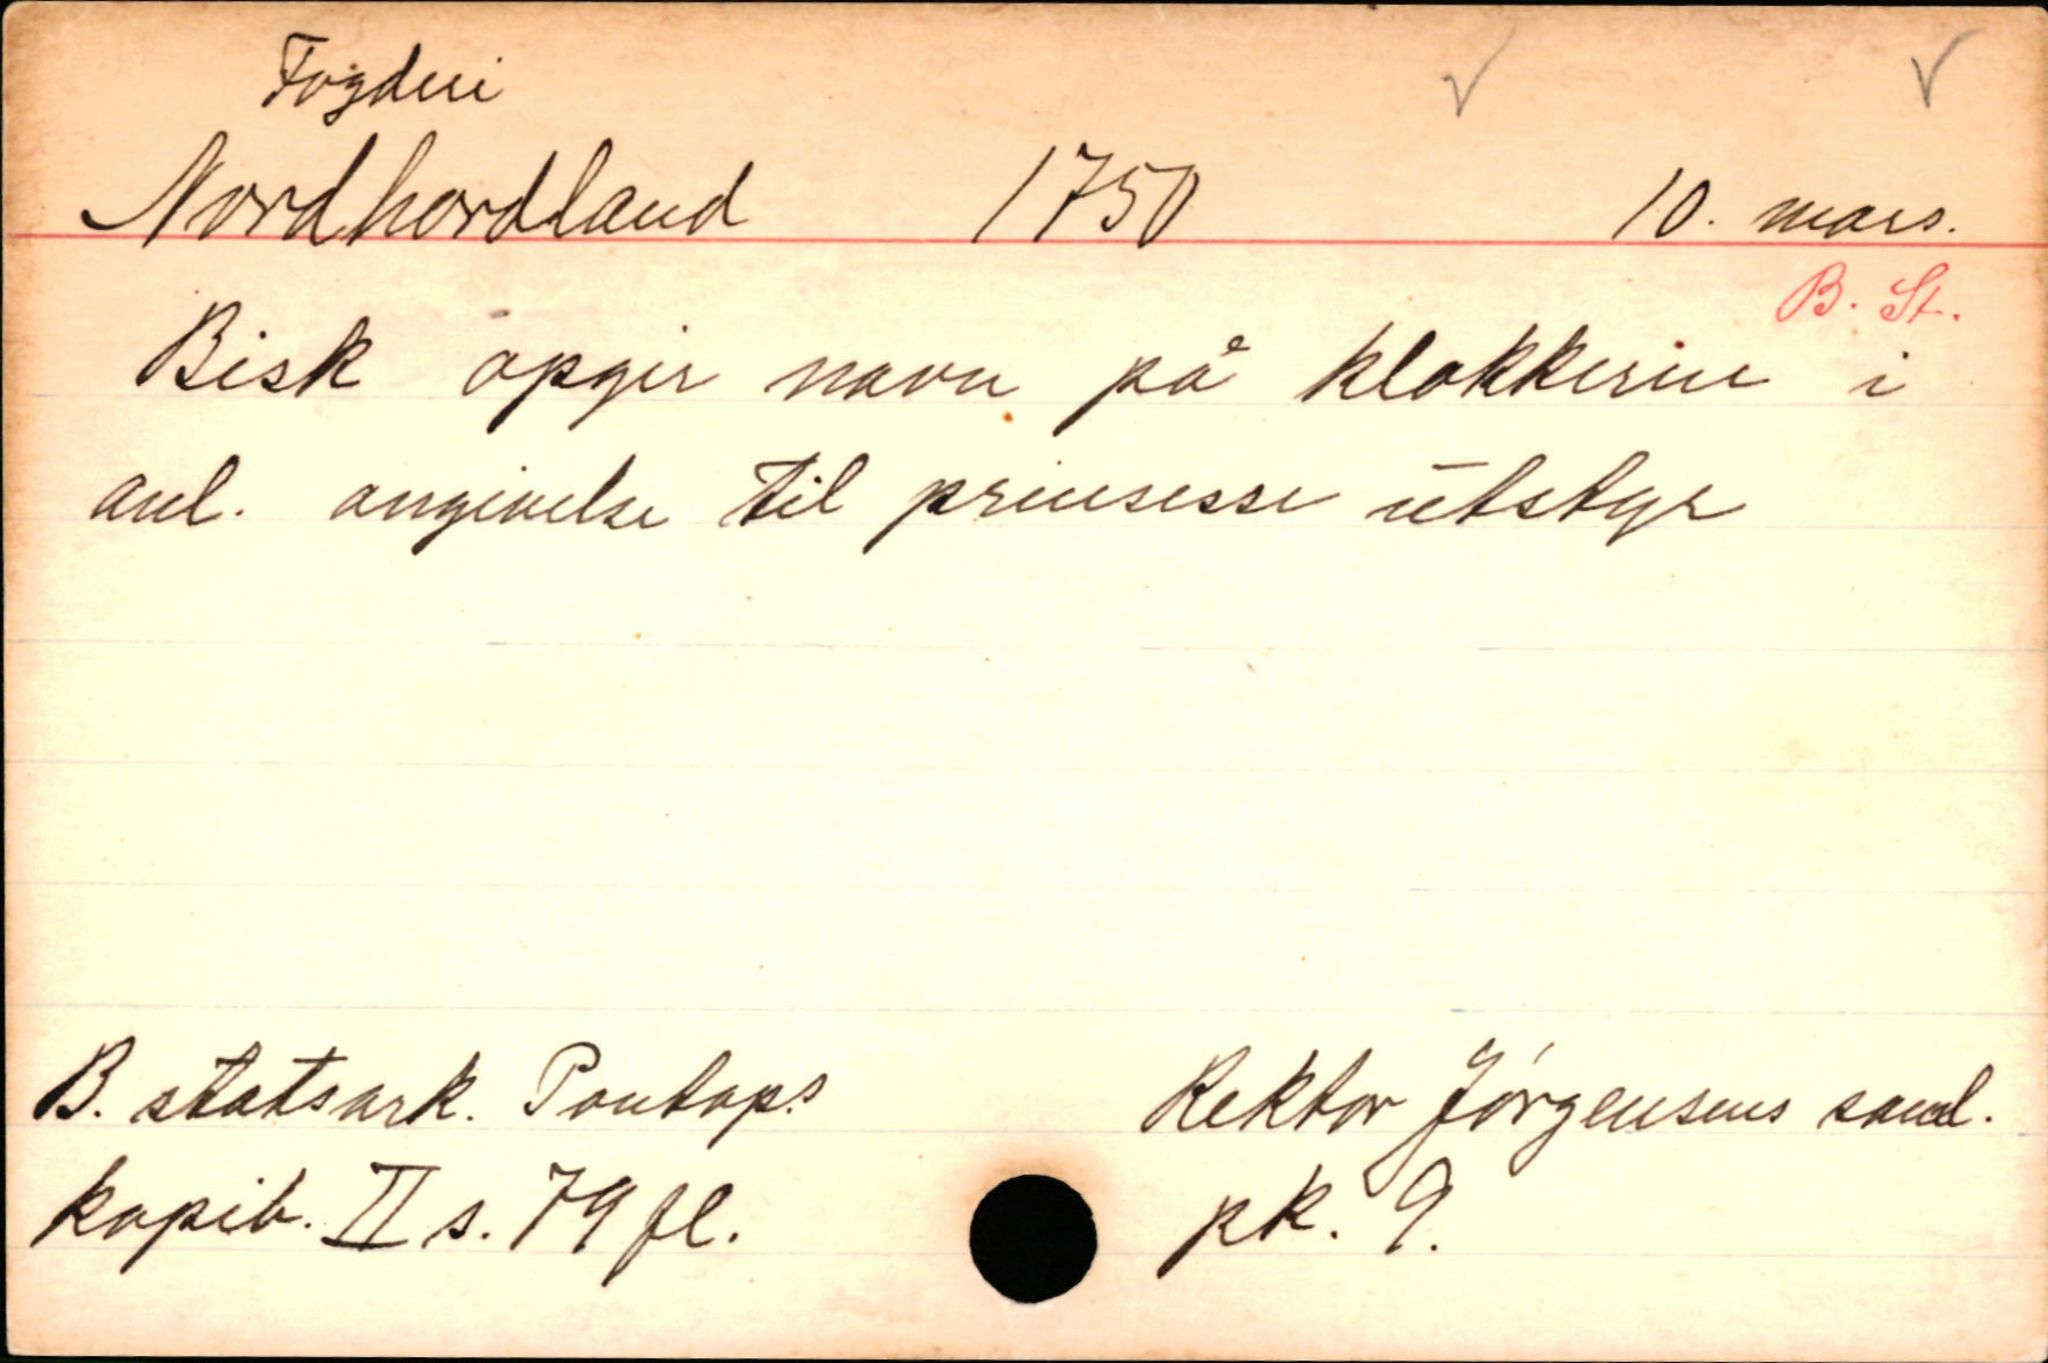 Fogderi
Nordhordland 1750 10. mars.
B. St.
Bisk opgir navn på klokkerne i
anl. angivelse til prinsesse utstyr
B. statsark. Pontops
kopib. II s. 79 fl.
Rektor Jörgensens saml.
pk. 9.